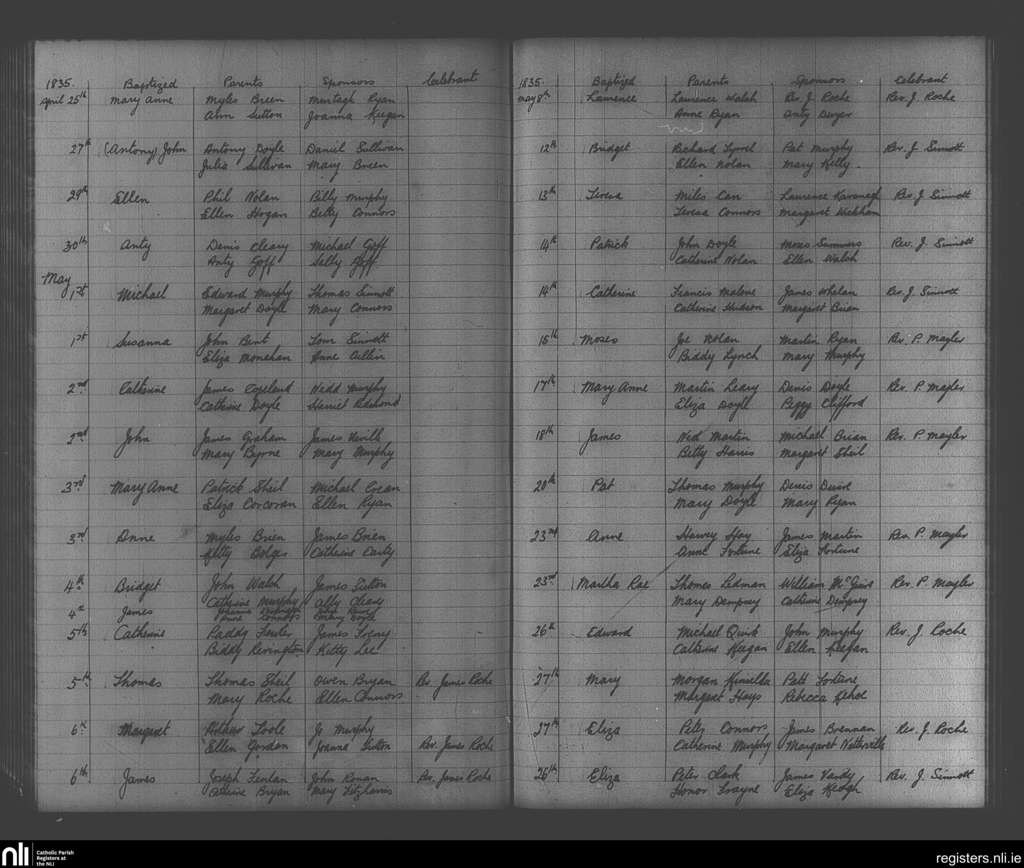 1835. Baptized Parents Sponsors Celebrant
April 25th Mary Anne Myles Breen Murtagh Ryan
Ann Sutton Joanna Keegan
27th (Antony) John Antony Doyle Daniel Sullivan
Julia Sullivan Mary Breen
29th Ellen Phil Nolan Billy Murphy
Ellen Hogan Betty Connors
30th Anty Denis Cleary Michael Goff
Anty Goff Sally Goff
May
1st Michael Edward Murphy Thomas Sinnott
Margaret Doyle Mary Connors
1st Susanna John Bent Tom Sinnott
Eliza Monehan Anne
2nd Catherine James Copeland Nedd Murphy
Catherine Doyle Harriet Redmond
2nd John James Graham James Nevill
Mary Byrne Mary Murphy
3rd Mary Anne Patrick Sheil Michael Crean
Eliza Corcoran Ellen Ryan
3rd Anne Myles Brien James Brien
Kitty Bolger Catherine Carty
4th Bridget John Walsh James Sutton
Catherine Murphy Ally Cleary
4th James
Anne Connors Doyle
5th Catherine Paddy Fowler James
Biddy Revington Kitty Lee
5th Thomas Thomas Sheil Owen Bryan Rev. James Roche
Mary Roche Ellen Connors
6th Margaret Arthur Toole Jo Murphy
Ellen Gordon Joanna Sutton Rev. James Roche
6th James Joseph Fenlan John Ronan Rev. James Roche
Catherine Bryan Mary Fitzharris
1835. Baptized Parents Sponsors Celebrant
May 8th Laurence Laurence Walsh Rev. J. Roche Rev. J. Roche
Anne Ryan Anty Dwyer
12th Bridget Richard Tyrrel Pat Murphy Rev. J Sinnott
Ellen Nolan Mary Kelly
13th Teresa Miles Carr Laurence Kavanagh Rev. J Sinnott
Teresa Connors Margaret Wickham
14th Patrick John Doyle Moses Summers Rev. J. Sinnott
Catherine Nolan Ellen Walsh
14th Catherine Francis Malone James Whelan Rev. J Sinnott
Catherine Hudson Margaret Brian
15th Moses Joe Nolan Martin Ryan Rev. P. Mayler
Biddy Lynch Mary Murphy
17th Mary Anne Martin Leary Denis Doyle Rev. P Mayler
Eliza Doyle Peggy Clifford
18th James Ned Martin Michael Brian Rev. P. Mayler
Betty Harris Margaret Sheil
20th Pat Thomas Murphy Denis
Mary Doyle Mary Ryan
23rd Anne Harvey Hay James Martin Rev. P. Mayler
Anne Fortune Eliza Fortune
23rd Martha Rae Thomas Redman William Rev. P. Mayler
Mary Dempsey Catherine Dempsey
26th Edward Michael Quirk John Murphy Rev. J. Roche
Catherine Keegan Ellen Keegan
27th Mary Morgan Kinsella Patt Fortune
Margaret Hays Rebecca Kehoe
27th Eliza Peter Connors James Brennan Rev. J. Roche
Catherine Murphy Margaret Netterville
26th Eliza Peter Clark James Vardy Rev. J. Sinnott
Honor Trayne Eliza Keogh
nli Catholic Parish
Registers at
the NLI
registers.nli.ie